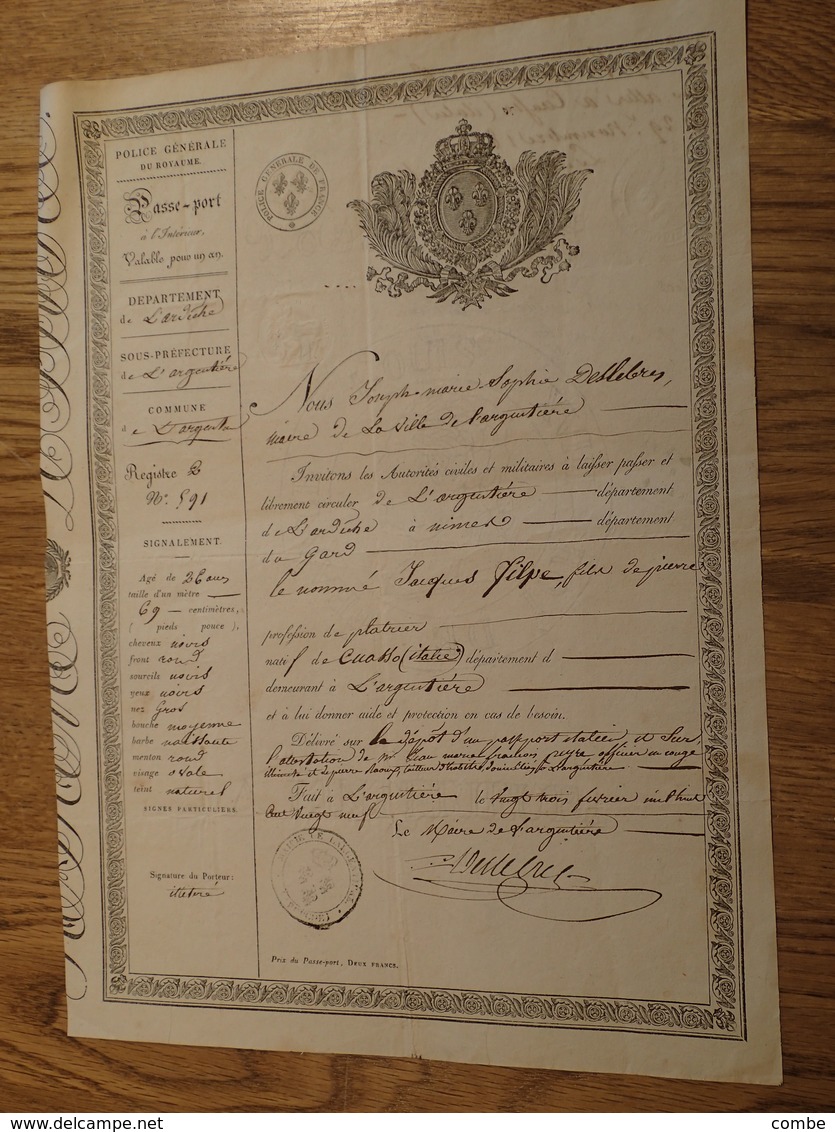 POLICE GÉNÉRALE
DU ROYAUME.
Passe-port
à l'Intérieur,
Valable pour un an.
DÉPARTEMENT
de L'ardèche
SOUS-PRÉFECTURE
de L'argentière
COMMUNE
de L'argent
Registre 2
N.° 591
SIGNALEMENT.
Agé de 26 ans
taille d'un mètre
69 centimètres,
( pieds pouce),
cheveux noirs
front rond
sourcils noirs
yeux noirs
nez Gros
bouche moyenne
barbe naissante
menton rond
visage ovale
teint naturel
SIGNES PARTICULIERS.
Signature du Porteur:
illetéré
POLICE GÉNÉRALE DE FRANCE
Nous Joseph-marie Sophie Deslebres,
maire de La ville de L'argentière
Invitons les Autorités civiles et militaires à laisser passer et
librement circuler de L'argentière département
de L'ardèche à nimes département
du Gard
le nommé Jacques Filpe, fils de pierre
profession de platrier
natif de Cuasso (italie) département d
demeurant à L'argentière
et à lui donner aide et protection en cas de besoin.
Délivré sur le dépot d'un passport italien et sur
l'attestation de mr jean marie officier en
et pierre domiciliés à L'argentière
Fait à L'argentière le vingt trois fevrier mil huit
cent vingt neuf
Le Maire de L'argentière
Deslebres
Prix du Passe-port, DEUX FRANCS.
combe